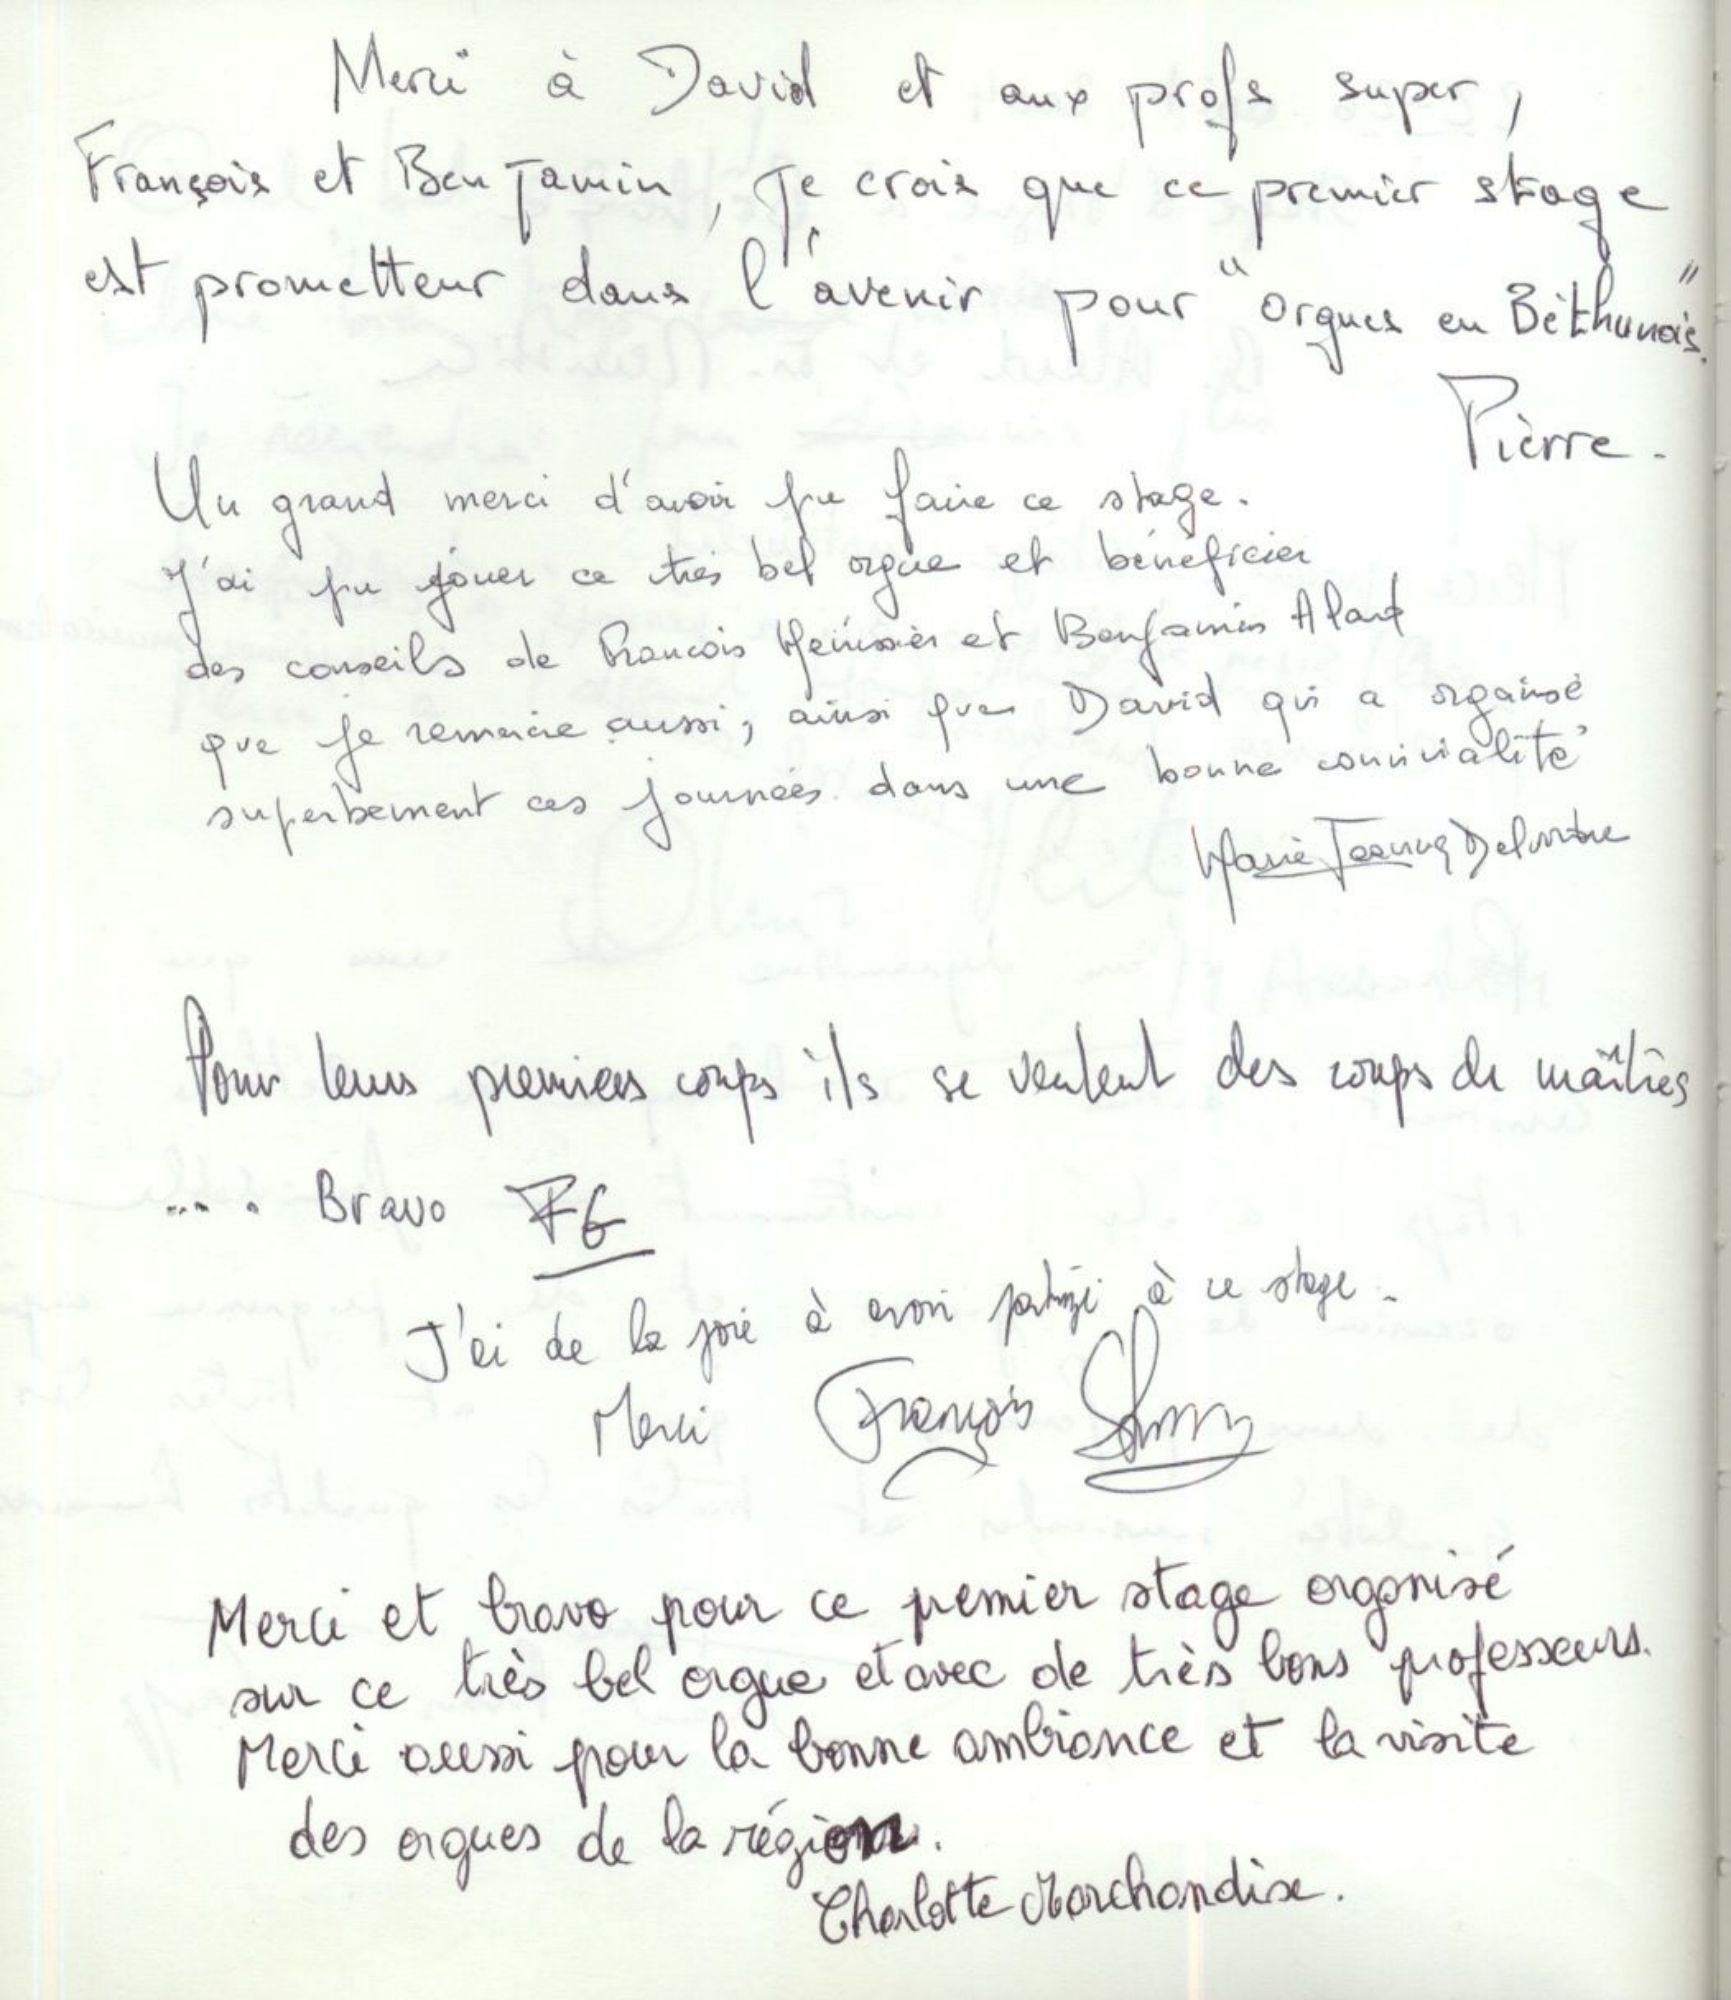 Merci à David et aux profs super,
François et Benjamin, je crois que ce premier stage
est prometteur dans l'avenir pour "orgues en Béthunois".
Pierre.
Un grand merci d'avoir pu faire ce stage.
J'ai pu jouer ce très bel orgue et bénéficier
des conseils de François Ménissier et Benjamin Alard
que je remercie aussi, ainsi que David qui a organisé
superbement ces journées dans une bonne convivialité
Marie Jeanne
Pour leurs premiers coups ils se veulent des coups de maîtres
.... Bravo FG
J'ai de la joie à avoir participé à ce stage.
Merci François
Merci et bravo pour ce premier stage organisé
sur ce très bel orgue et avec de très bons professeurs.
Merci aussi pour la bonne ambiance et la visite
des orgues de la région.
Charlotte Marchandise.